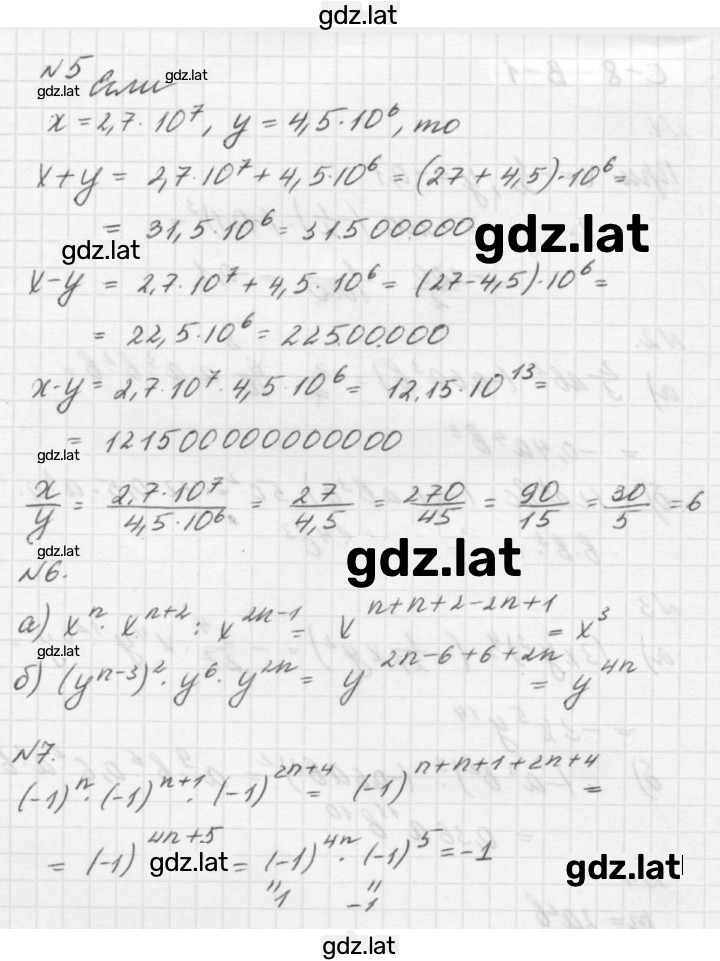 gdz.lat
N5 Если gdz.lat
gdz.lat
x = 2,7 · 10^7, y = 4,5 · 10^6, то
x + y = 2,7 · 10^7 + 4,5 · 10^6 = (27 + 4,5) · 10^6 =
= 31,5 · 10^6 = 31500000 gdz.lat
gdz.lat
x - y = 2,7 · 10^7 + 4,5 · 10^6 = (27 - 4,5) · 10^6 =
= 22,5 · 10^6 = 22500000
x · y = 2,7 · 10^7 · 4,5 · 10^6 = 12,15 · 10^13 =
= 121500000000000
gdz.lat
x/y = 2,7 · 10^7 / 4,5 · 10^6 = 27/4,5 = 270/45 = 90/15 = 30/5 = 6
gdz.lat gdz.lat
N6.
а) x^n · x^n+2 : x^2n-1 = x^n+n+2-2n+1 = x^3
gdz.lat
б) (y^n-3)^2 · y^6 · y^2n = y^2n-6+6+2n = y^4n
N7.
(-1)^n · (-1)^n+1 · (-1)^2n+4 = (-1)^n+n+1+2n+4 =
= (-1)^4n+5 = (-1)^4n · (-1)^5 = -1
gdz.lat gdz.lat
" "
1 -1
gdz.lat